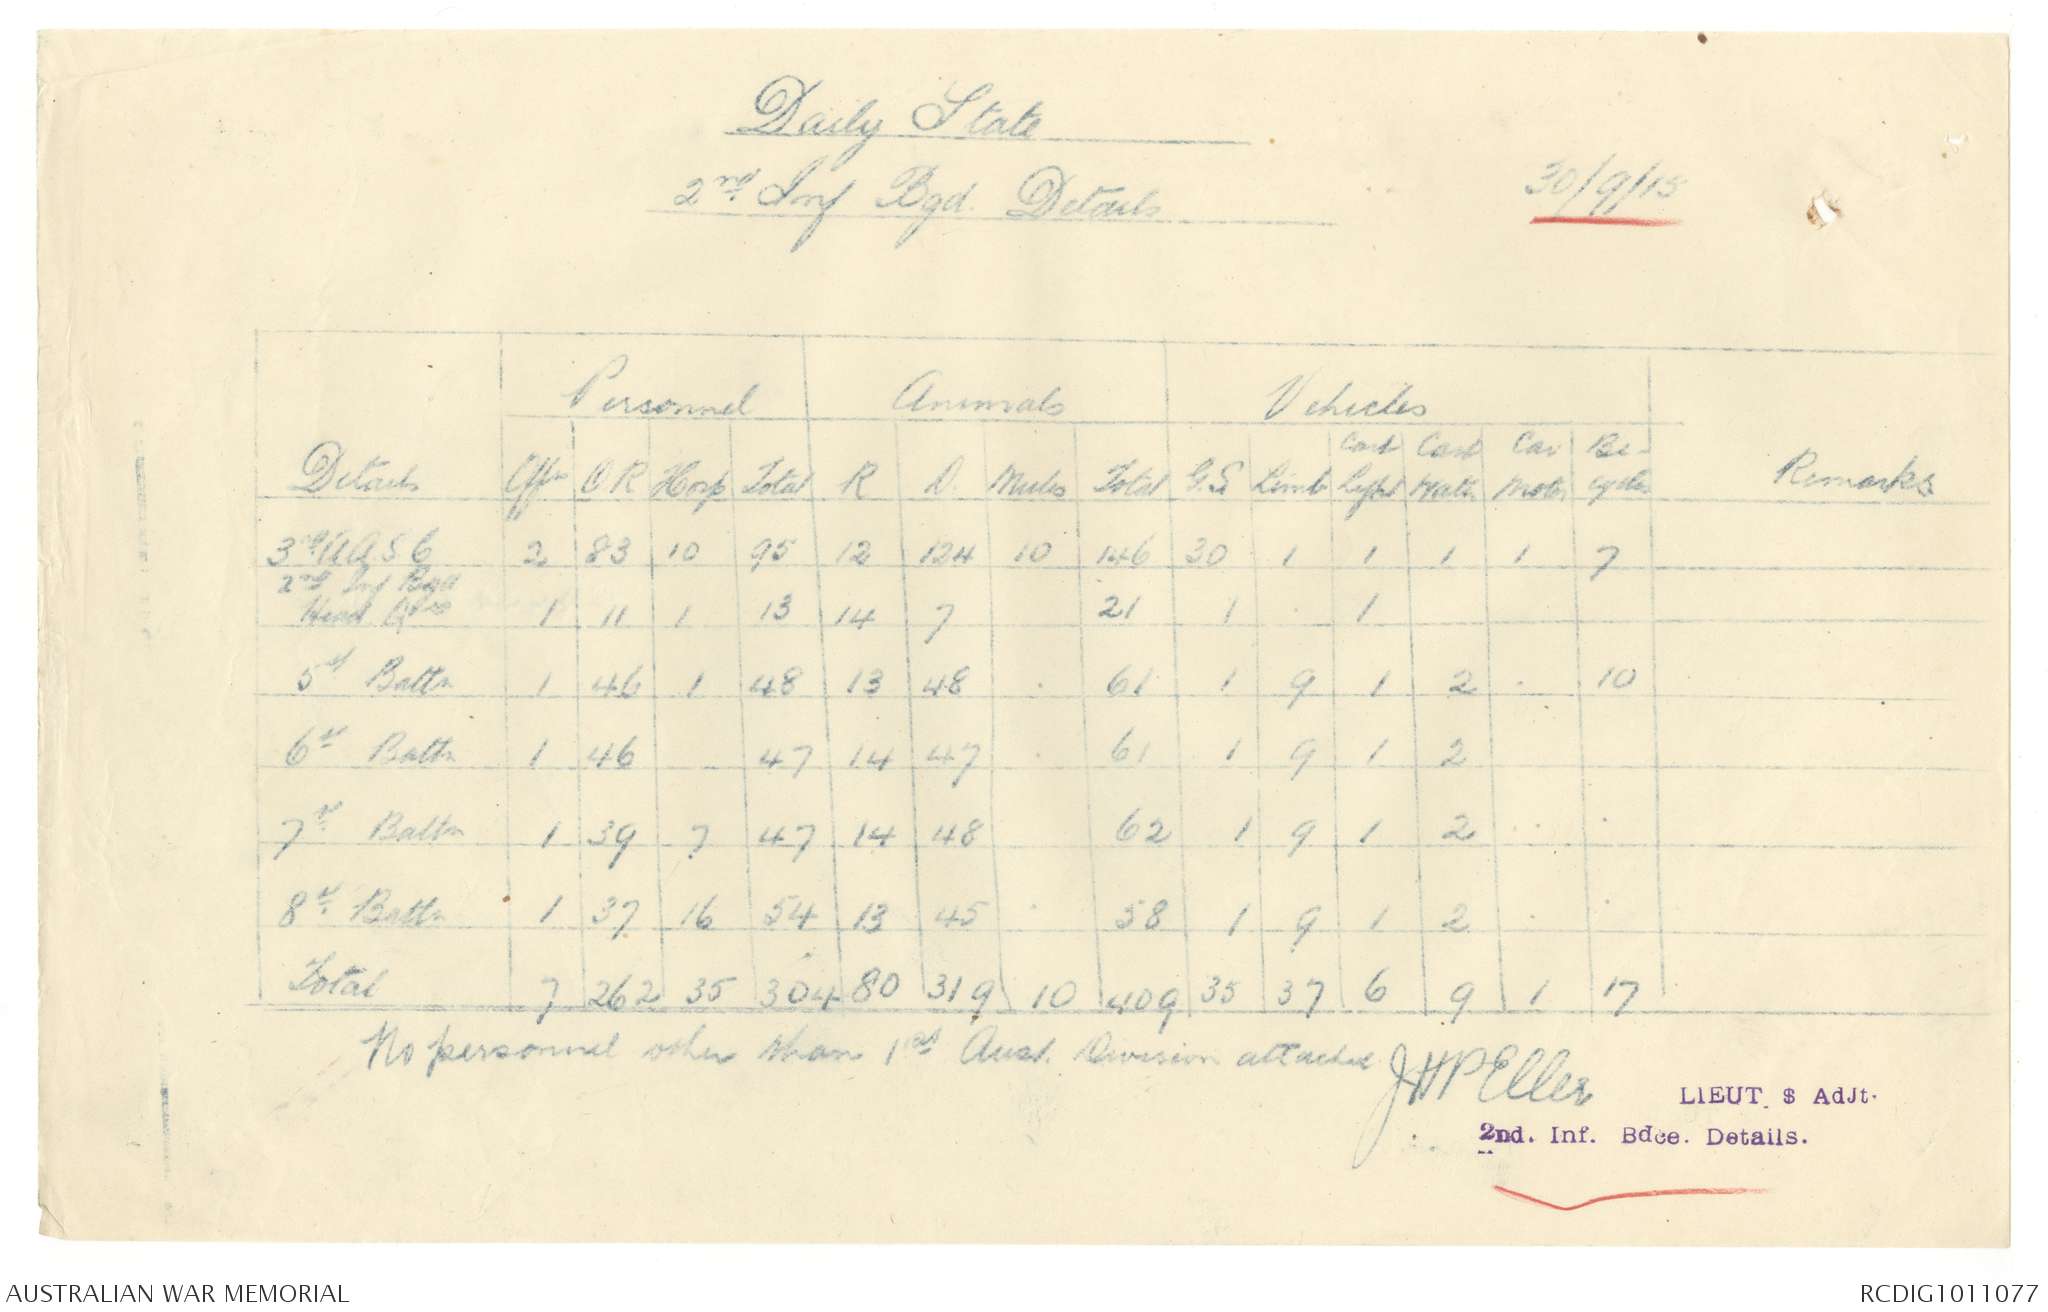 Daily State
2nd Inf Bgd. Details 30/9/15
Personnel Animals Vehicles
Details Offr O R Hosp Total R D. Mules Total G.S Limb Cart Lght Cart Watr Car Motor Bi-cycles Remarks
3rd A A S C 2 83 10 95 12 124 10 146 30 1 1 1 1 7
2nd Inf Bgd
Head Qrs 1 11 1 13 14 7 21 1 . 1
5th Battn 1 46 1 48 13 48 . 61 1 9 1 2 . 10
6th Battn 1 46 47 14 47 . 61 1 9 1 2
7th Battn 1 39 7 47 14 48 62 1 9 1 2 . .
8th Battn 1 37 16 54 13 45 . 58 1 9 1 2 . .
Total 7 262 35 304 80 319 10 409 35 37 6 9 1 17
No personnel other than 1st Aust. Division attached
J H P Eller LIEUT $ AdJt.
2nd. Inf. Bdce. Details.
AUSTRALIAN WAR MEMORIAL RCDIG1011077